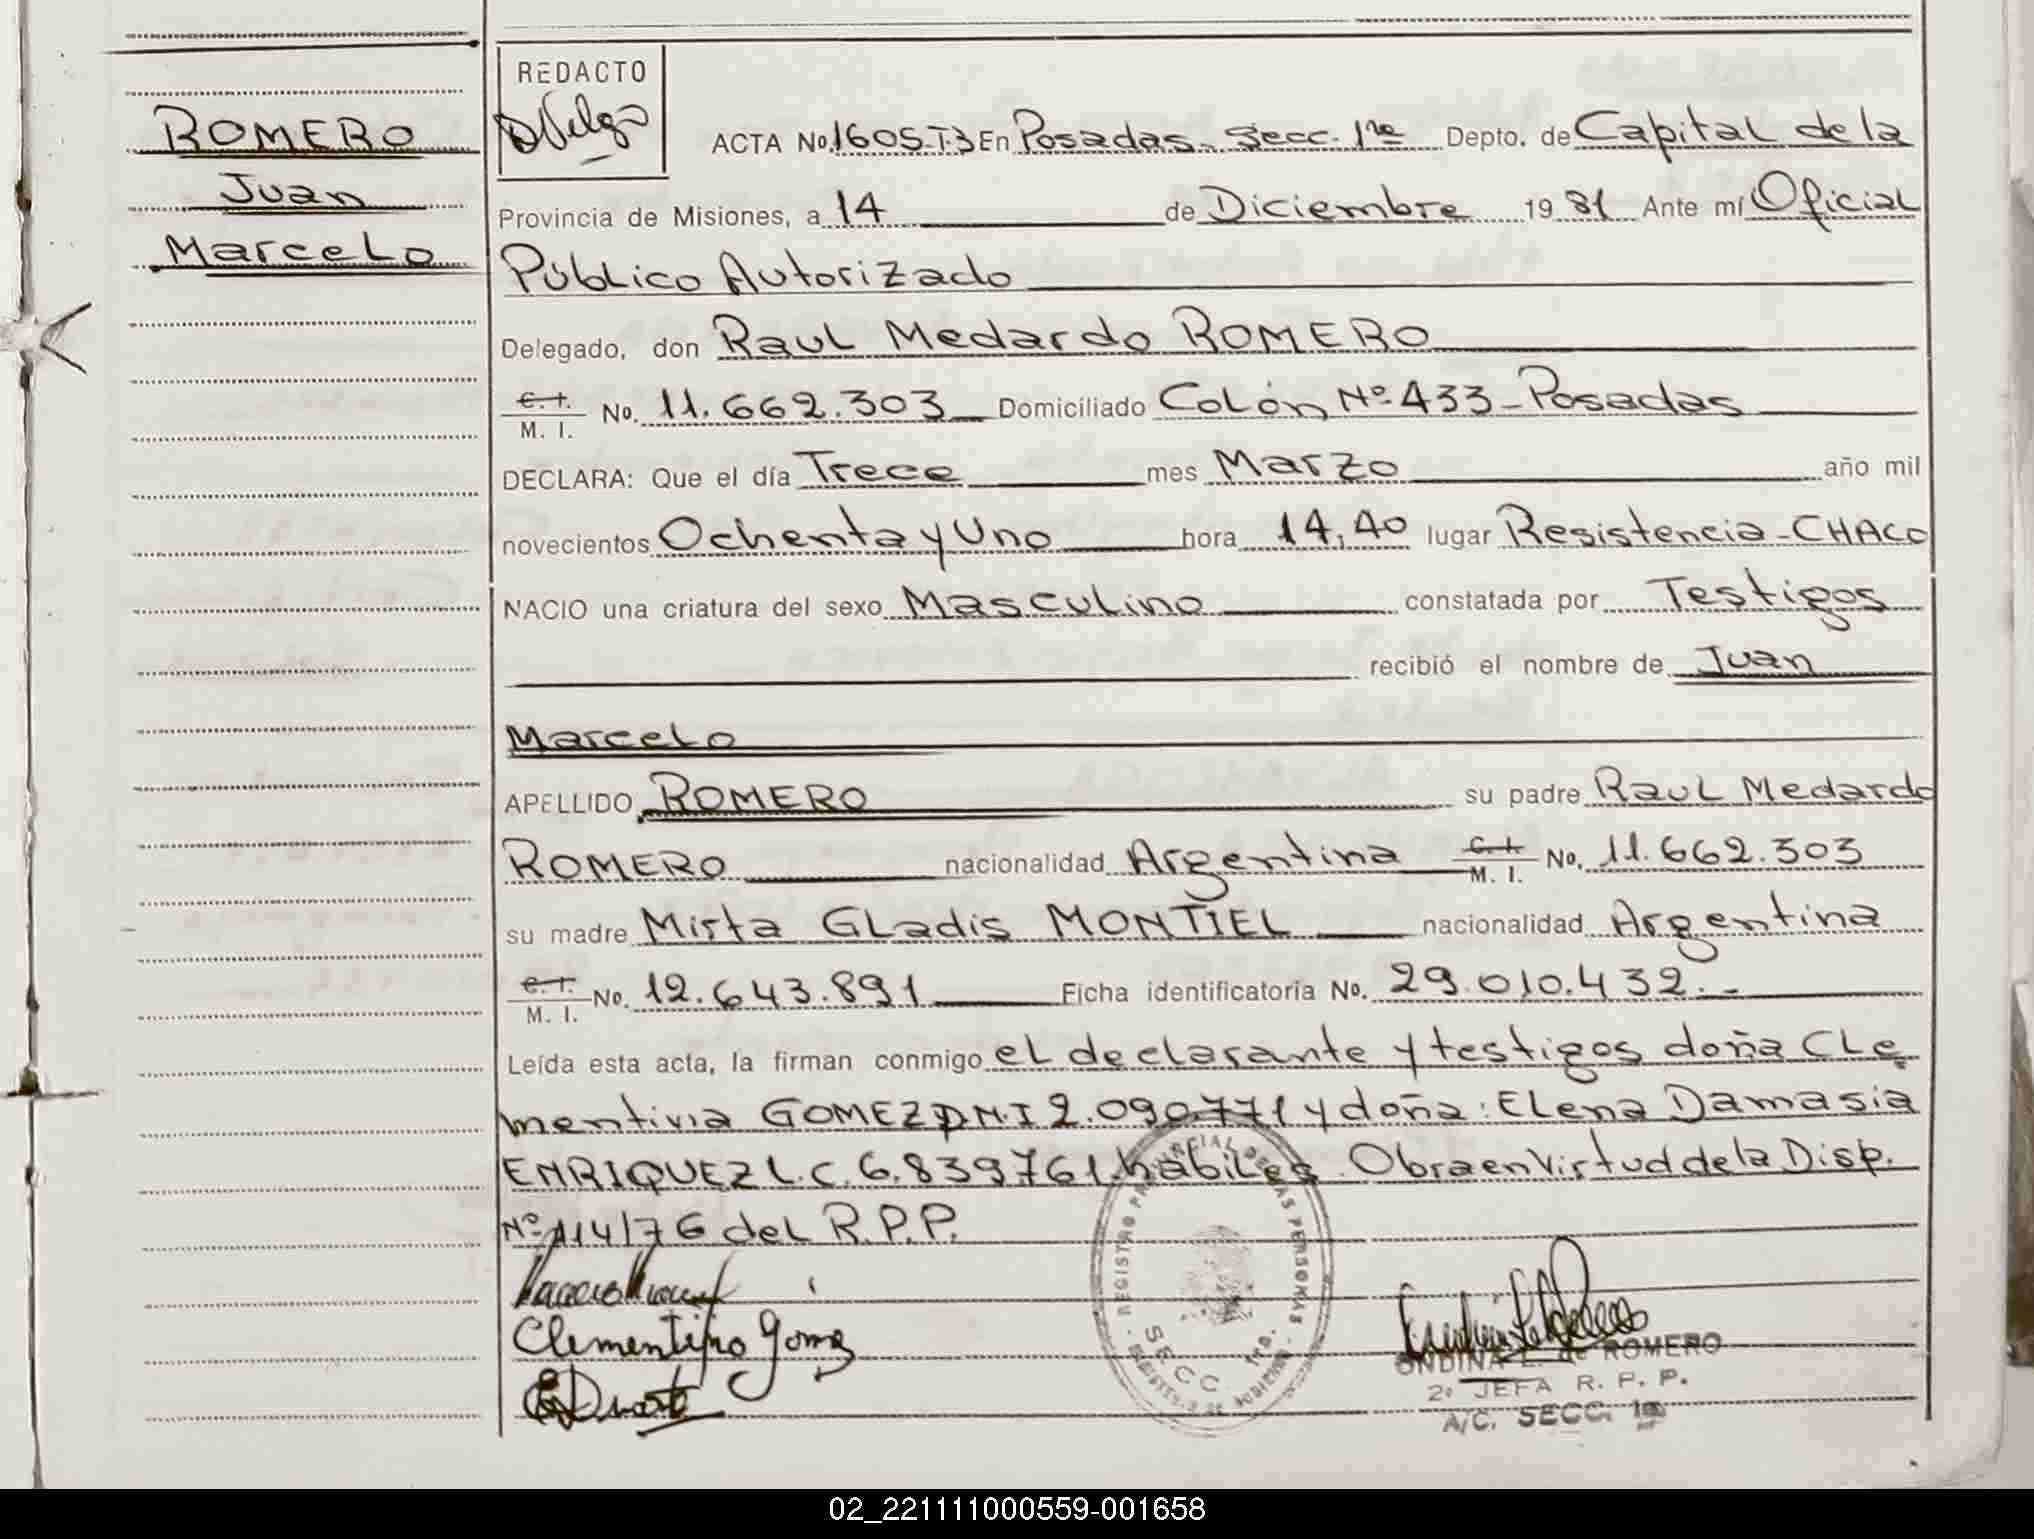 ROMERO
Juan
Marcelo
REDACTO
ACTA No. 1605-T.3 En Posadas - Secc. 1ra Depto. de Capital de la
Provincia de Misiones, a 14 de Diciembre 19 81 Ante mí Oficial
Público Autorizado
Delegado, don Raul Medardo ROMERO
C. I.
M. I. No. 11.662.303 Domiciliado Colón Nº 433 - Posadas
DECLARA: Que el día Trece mes Marzo año mil
novecientos Ochenta y Uno hora 14,40 lugar Resistencia - CHACO
NACIO una criatura del sexo Masculino constatada por Testigos
recibió el nombre de Juan
Marcelo
APELLIDO ROMERO su padre Raul Medardo
ROMERO nacionalidad Argentina C. I.
M. I. No. 11.662.303
su madre Mirta Gladis MONTIEL nacionalidad Argentina
C. I.
M. I. No. 12.643.891 Ficha identificatoria No. 29.010.432.-
Leída esta acta, la firman conmigo el declarante y testigos doña Cle
mentina GOMEZ D.N.I 2.090771 y doña: Elena Damasia
ENRIQUEZ L.C. 6.839.761. hábiles. Obra en Virtud de la Disp.
Nº 114/76 del R.P.P.
REGISTRO PROVINCIAL DE LAS PERSONAS
SECC 1ra.
ONDINA L. de ROMERO
2º JEFA R. P. P.
A/C. SECC. 1ra
02_221111000559-001658